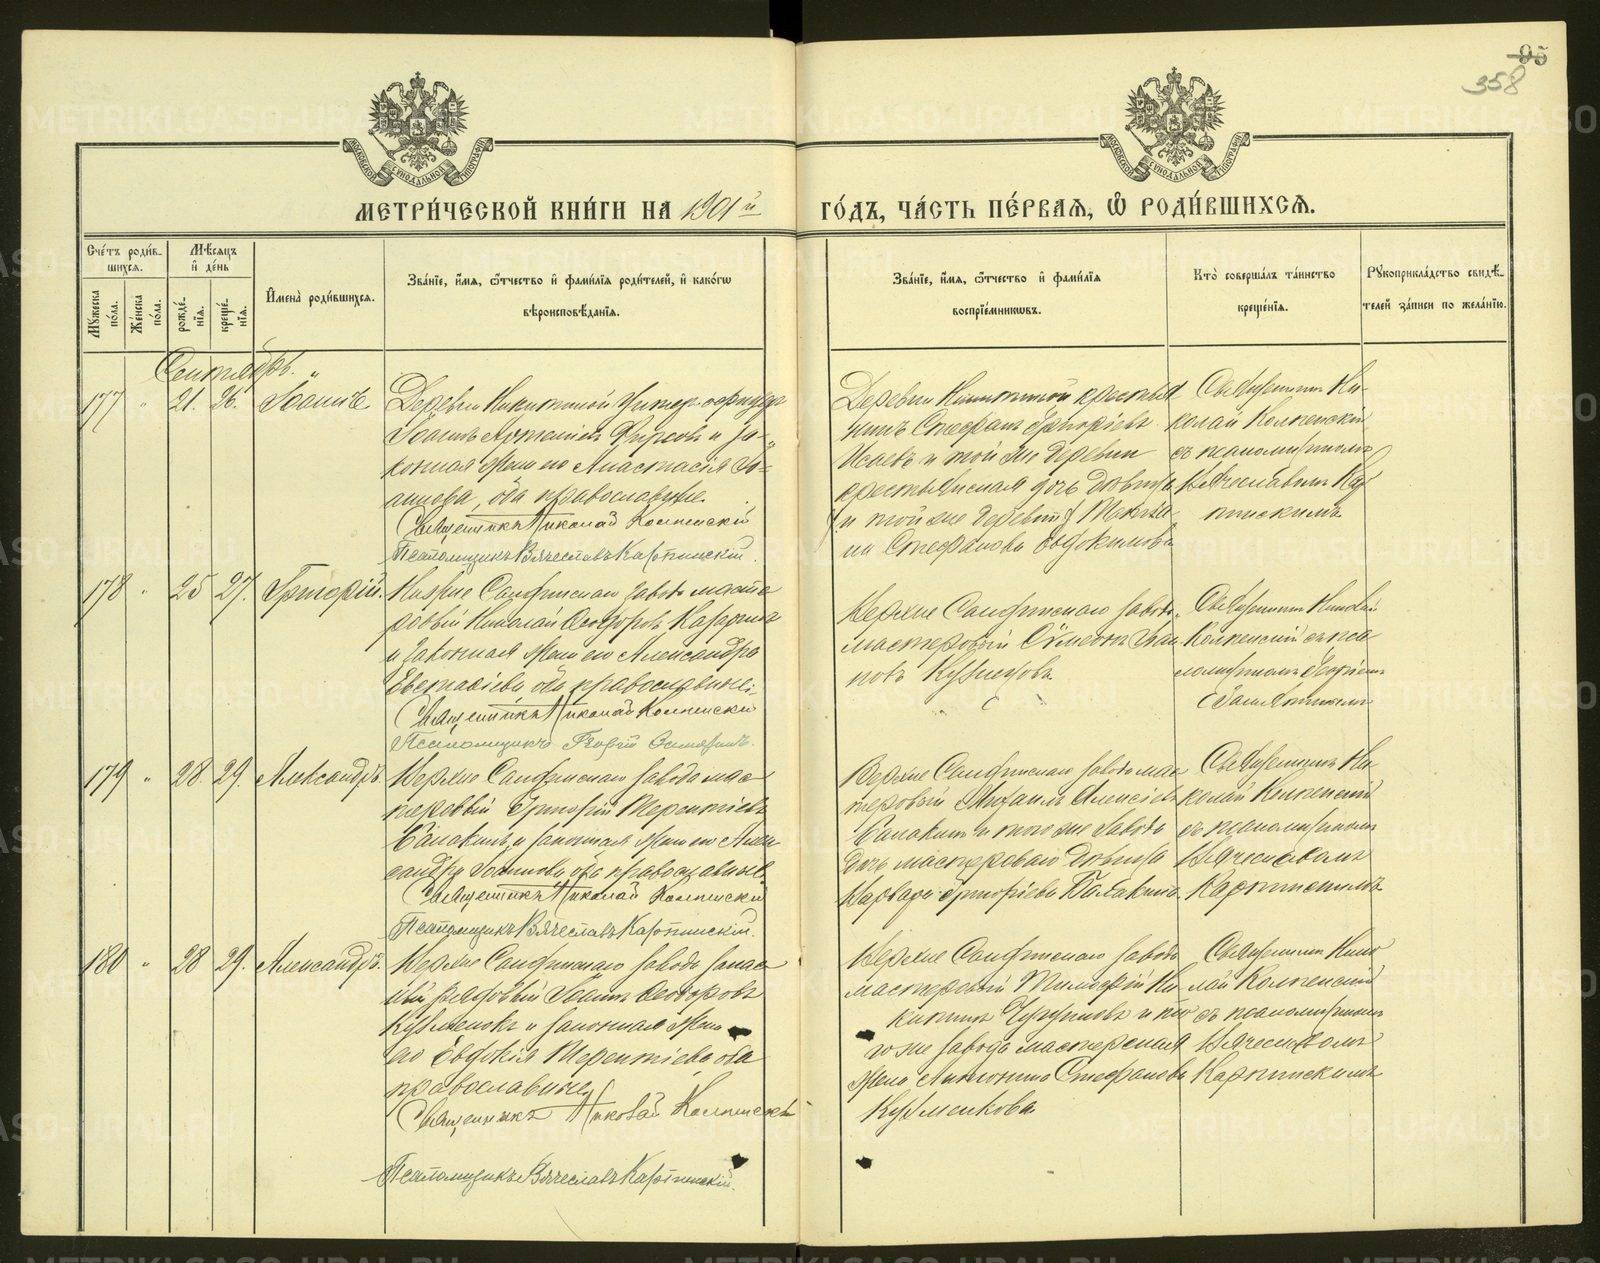 95
358
МЕТРИ́ЧЕСКОЙ КНИ́ГИ НА 1901й ГО́ДЪ, ЧА́СТЬ ПЕ́РВАЯ, Ѽ РОДИ́ВШИХСѦ.
Сче́тъ роди́в-
шихся.
Мѣ́сяцъ
и҆ де́нь
Мꙋ́жеска по́ла.
Же́нска по́ла.
рожде́нїя.
креще́нїя.
И҆мена̀ роди́вшихся.
Зва́нїе, и҆́мя, ѻ҆́тчество и҆ фами́лїя роди́телей, и҆ како́гѡ
вѣроисповѣ́данїя.
Зва́нїе, и҆́мя, ѻ҆́тчество и҆ фами́лїя
воспрїе́мникѡвъ.
Кто̀ соверша́лъ та́инство
креще́нїя.
Рꙋкоприкла́дство свидѣ́-
телей за́писи по жела́нїю.
Сентябрь.
177 " 21. 26. Іоаннъ
Деревни Никитиной унтер-офицеръ
Іоаннъ Фирсовъ и за-
конная жена его Анастасія Іо-
аннова, оба православные.
Священникъ Николай Колпенскій
Псаломщикъ Вячеславъ Карпинскій.
Деревни Никитиной крестья
нинъ Стефанъ Григоріевъ
Исаевъ и той же деревни
крестьянская дочь девица
и той же деревни
на Стефанова Евдокимова
Священникъ Ни-
колай Колпенскій
съ псаломщикомъ
Вячеславомъ Кар
пинскимъ
178 " 25 27. Григорій.
Нижне Салдинскаго завода масте
ровый Николай Ѳеодоровъ
и законная жена его Александра
Евстафіева, оба православные.
Священникъ Николай Колпенскій
Псаломщикъ Георгій
Верхне Салдинскаго завода
мастеровый Сѵмеонъ Іоан
новъ Кузнецовъ
Священникъ Николай
Колпенскій съ пса
ломщикомъ Георгіемъ
179 " 28 29. Александръ
Верхне Салдинскаго завода мас
теровый Григорій Терентіевъ
Балакинъ и законная жена его Алек
сандра Іоаннова оба православные.
Священникъ Николай Колпенскій
Псаломщикъ Вячеславъ Карпинскій.
Верхне Салдинскаго завода мас
теровый Михаилъ Алексіевъ
Балакинъ и того же завода
дочь мастероваго девица
Варвара Григоріева Балакина.
Священникъ Ни-
колай Колпенскій
съ псаломщикомъ
Вячеславомъ
Карпинскимъ
180 " 28 29. Александръ.
Верхне Салдинскаго завода запас
ный рядовый Іоаннъ Ѳеодоровъ
Кузменковъ и законная жена
его Евдокія Терентіева оба
православные.
Священникъ Николай Колпенскій
Псаломщикъ Вячеславъ Карпинскій.
Верхне Салдинскаго завода
мастеровый Тимофій Ни
китинъ и то
го же завода мастерская
жена Антонина Стефанова
Кузменкова
Священникъ Нико
лай Колпенскій
съ псаломщикомъ
Вячеславомъ
Карпинскимъ